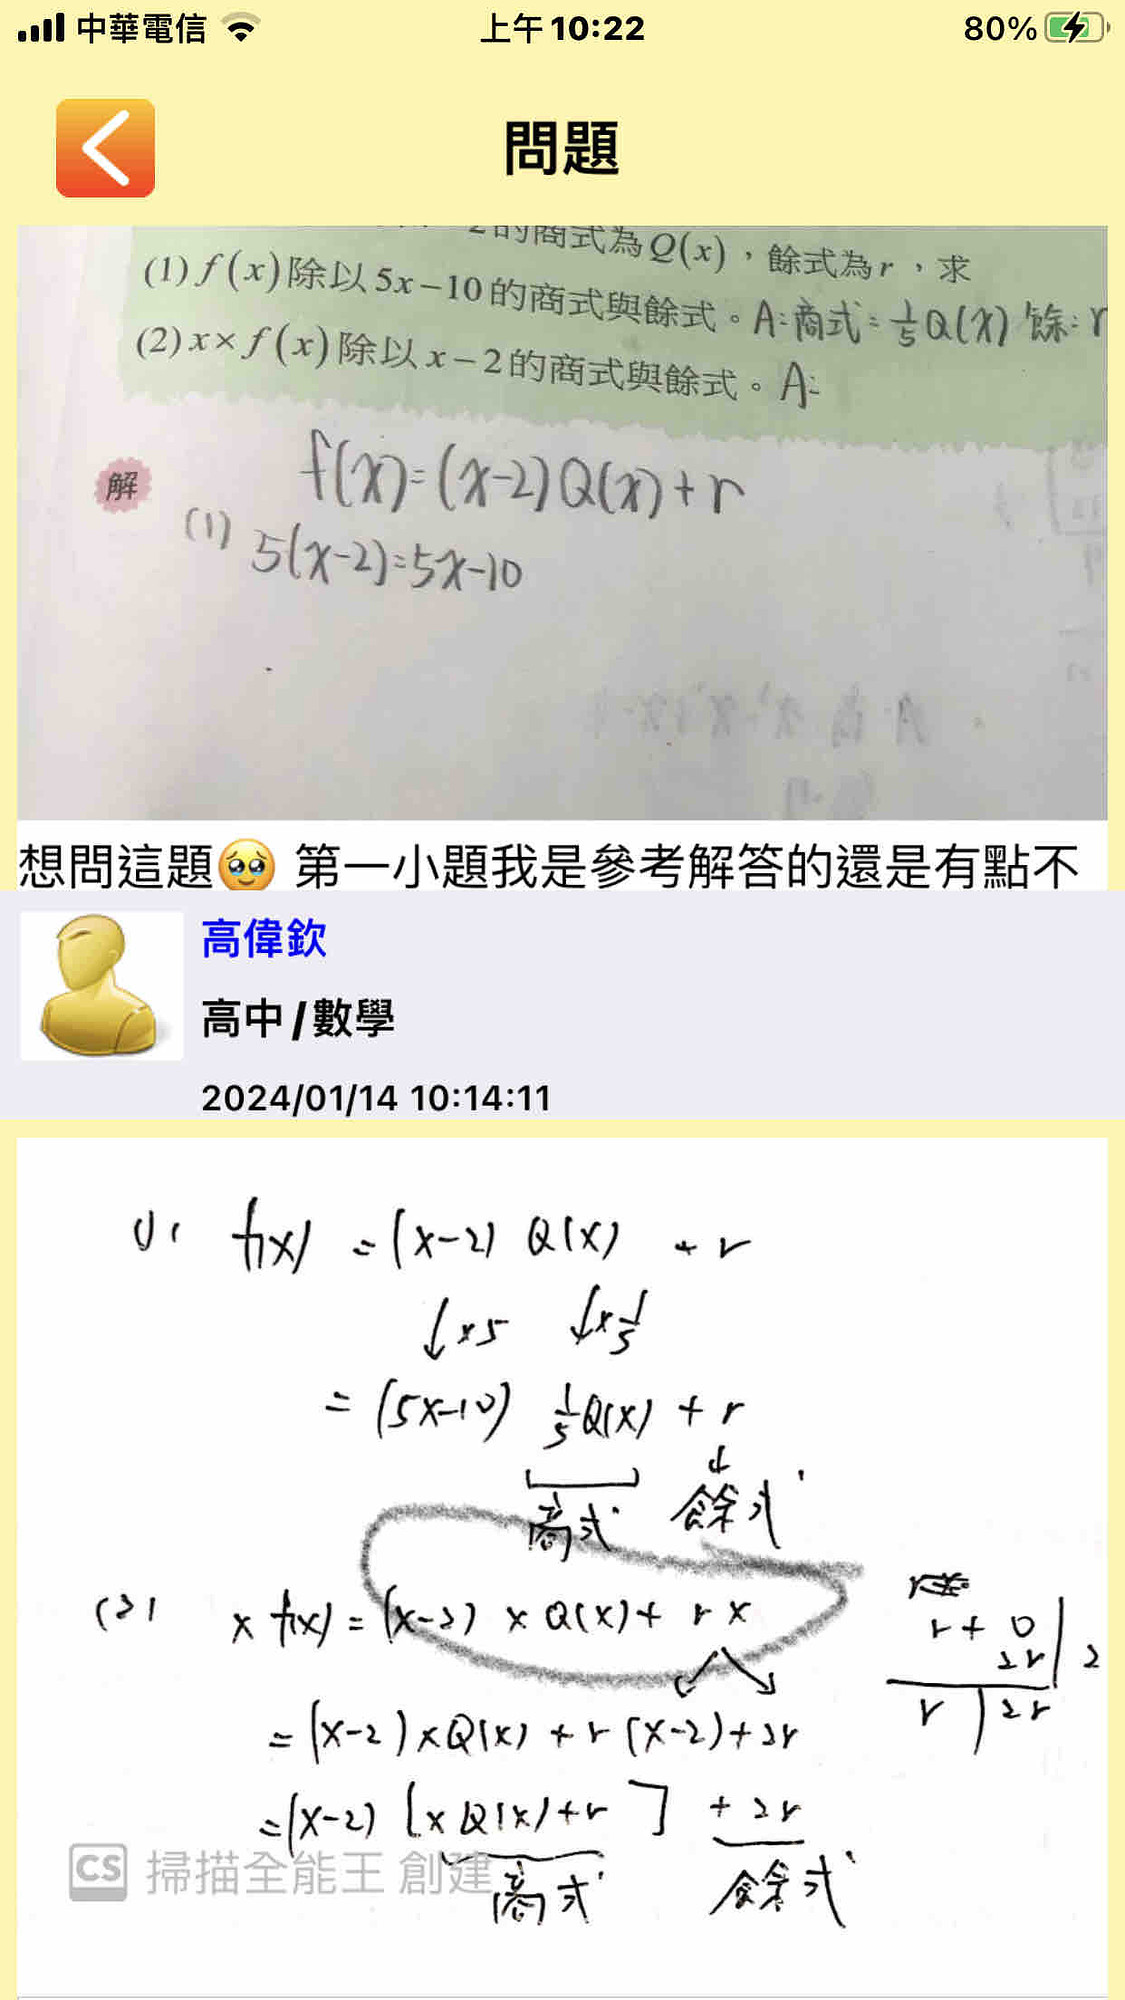 中華電信
上午10:22
80%
問題
2的商式為Q(x),餘式為r,求
(1) f(x)除以5x-10的商式與餘式。A:商式=1/5Q(x) 餘:r
(2) x×f(x)除以x-2的商式與餘式。A:
解
f(x)=(x-2)Q(x)+r
(1) 5(x-2)=5x-10
想問這題🥹 第一小題我是參考解答的還是有點不
高偉欽
高中/數學
2024/01/14 10:14:11
(1) f(x) = (x-2) Q(x) + r
↓x5 ↓x1/5
= (5x-10) 1/5Q(x) + r
商式 餘式
(2) x f(x) = (x-2) x Q(x) + r x
r + 0
2r 2
r 2r
= (x-2) x Q(x) + r (x-2) + 2r
= (x-2) [x Q(x) + r] + 2r
商式 餘式
CS 掃描全能王 創建